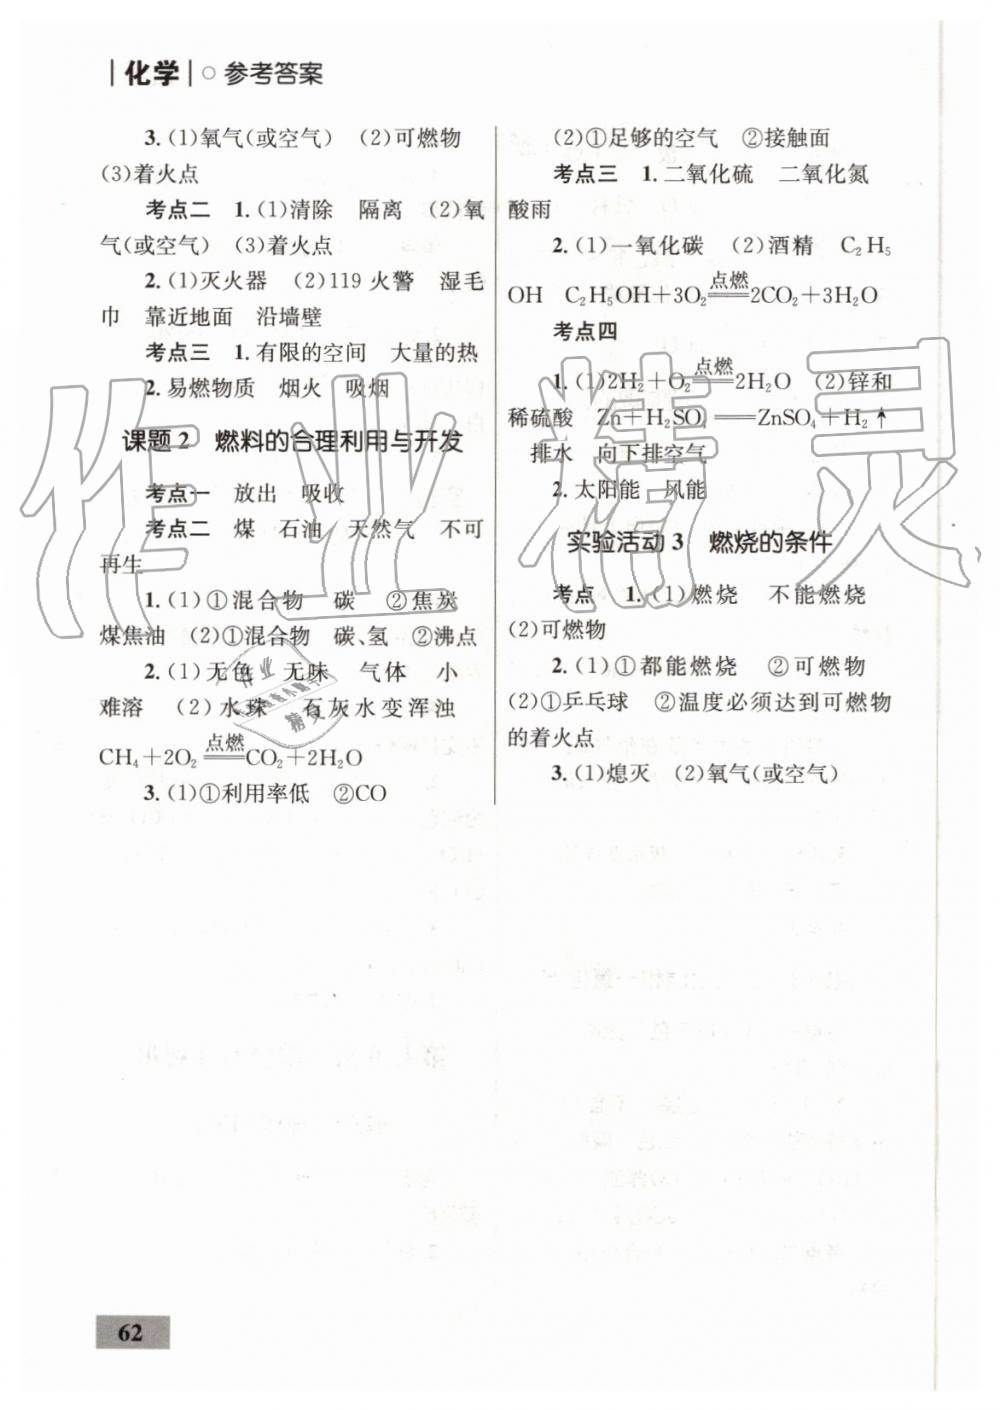 |化学|○参考答案
3. (1)氧气(或空气) (2)可燃物
(3)着火点
考点二 1. (1)清除 隔离 (2)氧
气(或空气) (3)着火点
2. (1)灭火器 (2)119 火警 湿毛
巾 靠近地面 沿墙壁
考点三 1. 有限的空间 大量的热
2. 易燃物质 烟火 吸烟
课题 2 燃料的合理利用与开发
考点一 放出 吸收
考点二 煤 石油 天然气 不可
再生
1. (1)①混合物 碳 ②焦炭
煤焦油 (2)①混合物 碳、氢 ②沸点
2. (1)无色 无味 气体 小
难溶 (2)水珠 石灰水变浑浊
CH₄+2O₂ \xlongequal{点燃} CO₂+2H₂O
3. (1)①利用率低 ②CO
(2)①足够的空气 ②接触面
考点三 1. 二氧化硫 二氧化氮
酸雨
2. (1)一氧化碳 (2)酒精 C₂H₅
OH C₂H₅OH+3O₂ \xlongequal{点燃} 2CO₂+3H₂O
考点四
1. (1)2H₂+O₂ \xlongequal{点燃} 2H₂O (2)锌和
稀硫酸 Zn+H₂SO₄══ZnSO₄+H₂↑
排水 向下排空气
2. 太阳能 风能
实验活动 3 燃烧的条件
考点 1. (1)燃烧 不能燃烧
(2)可燃物
2. (1)①都能燃烧 ②可燃物
(2)①乒乓球 ②温度必须达到可燃物
的着火点
3. (1)熄灭 (2)氧气(或空气)
62
作业精灵